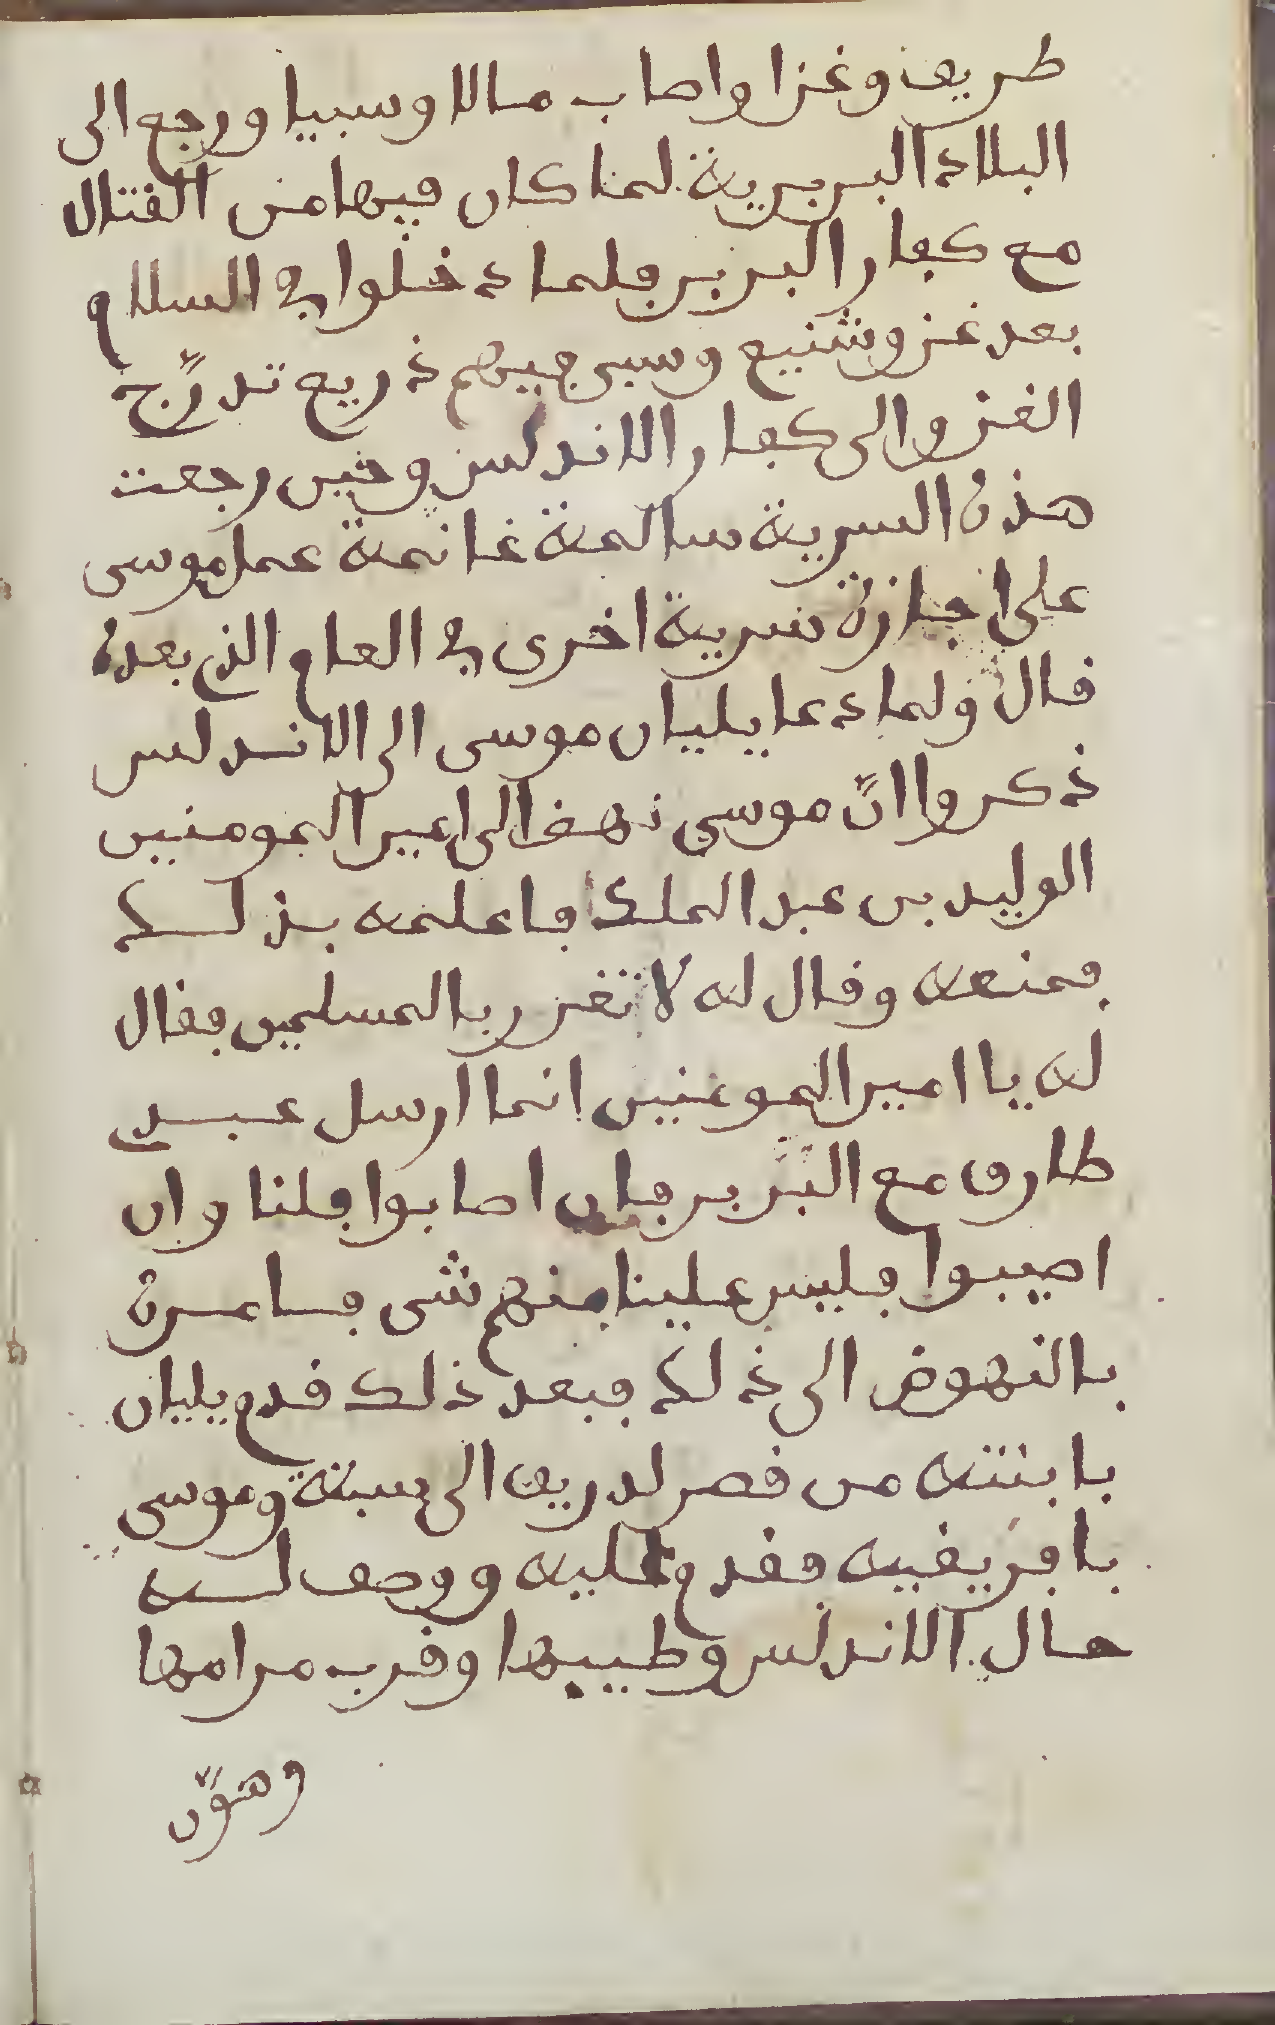 طريف وغزا واصاب مالا وسبيا ورجع الى
البلاد البربرية لما كان فيها من القتال
مع كفار البربر فلما دخلوا في السلام
بعد غزو شنيع وسبي فيهم ذريع تدرّج
الغزو الى كفار الاندلس وحين رجعت
هذه السرية سالمة غانمة عمل موسى
على اجازة سرية اخرى في العام الذي بعده
قال ولما دعا يليان موسى الى الاندلس
ذكروا انّ موسى نهض الى امير المومنين
الوليد بن عبد الملك فاعلمه بذلك
فمنعه وقال له لا تغرر بالمسلمين فقال
له يا امير المومنين انما ارسل عبدي
طارق مع البَرْبر فان اصابوا فلنا وان
اصيبوا فليس علينا منهم شي فامره
بالنهوض الى ذلك فبعد ذلك قدم يليان
بابنته من قصر لدريق الى سبتة وموسى
بافريقيه فقدم عليه ووصف له
حال الاندلس وطيبها وقرب مرامها
وهوّن